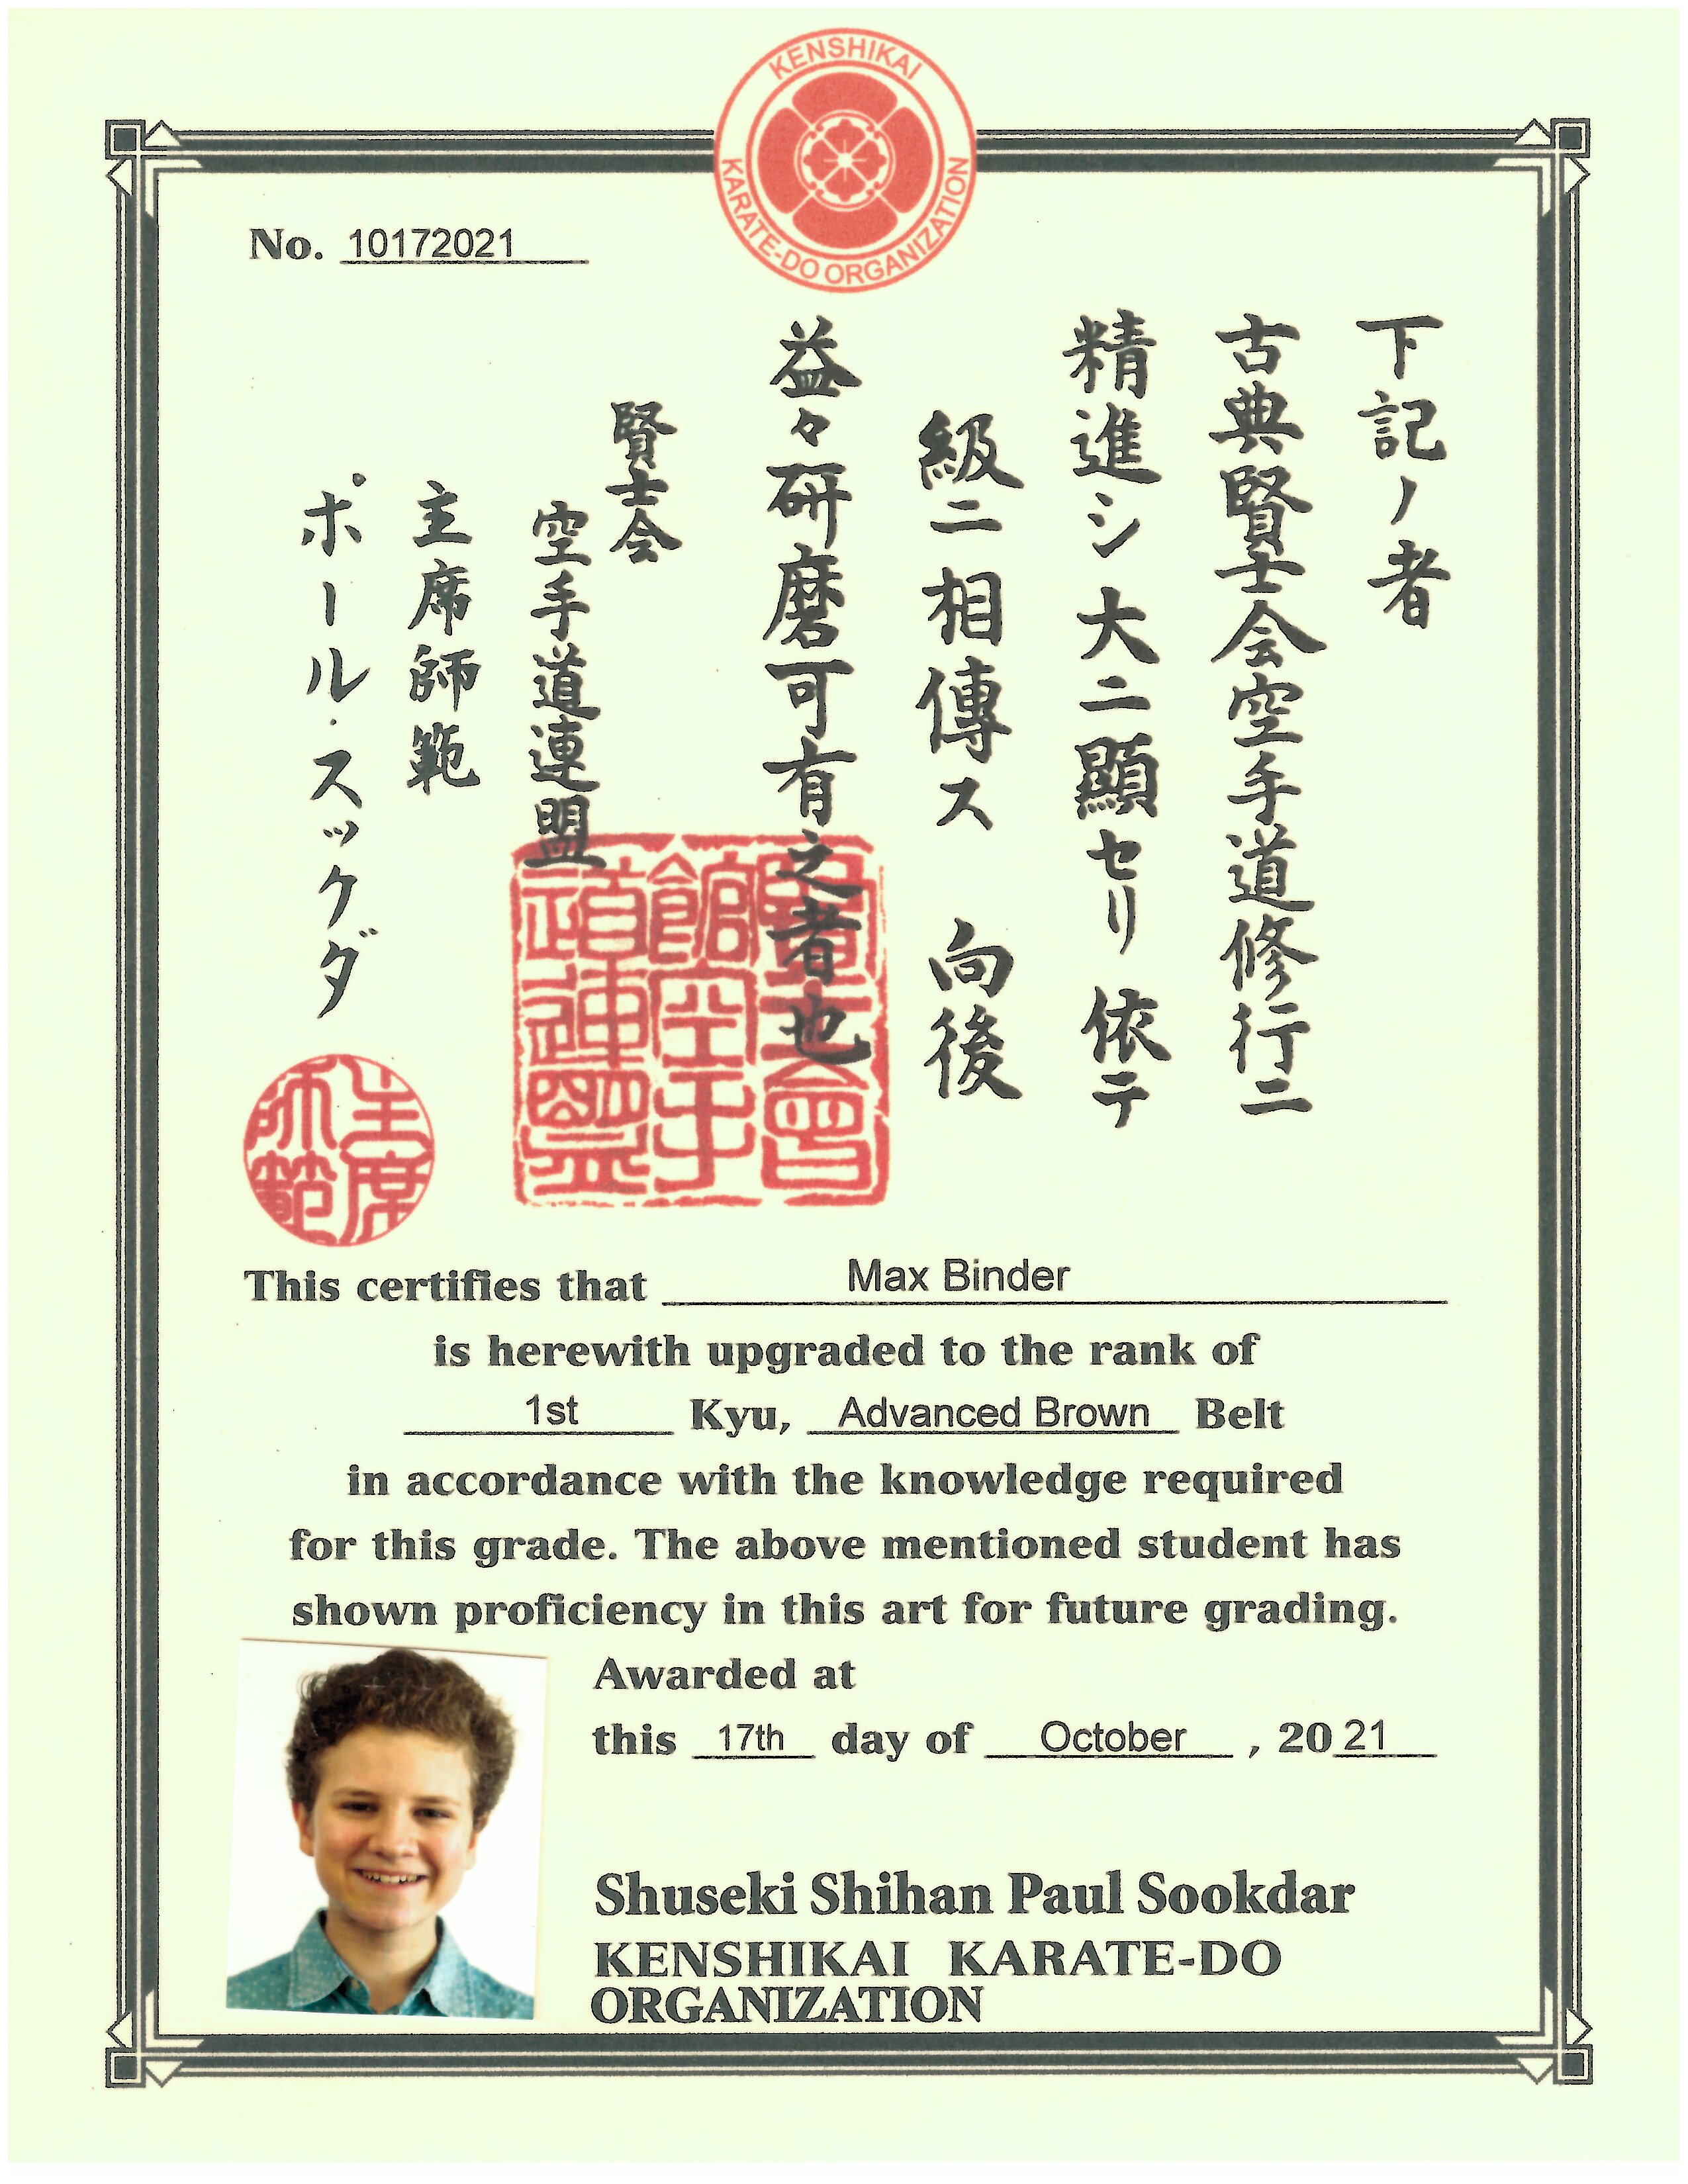 KENSHIKAI
KARATE-DO ORGANIZATION
No. 10172021
下記ノ者
古典賢士会空手道修行ニ
精進シ大ニ顕セリ 依テ
級ニ相傳ス 向後
益々研磨可有之者也
賢士会
空手道連盟
主席師範
ポール・スッケダ
賢士會
館空手
道連盟
主席
師範
This certifies that Max Binder
is herewith upgraded to the rank of
1st Kyu, Advanced Brown Belt
in accordance with the knowledge required
for this grade. The above mentioned student has
shown proficiency in this art for future grading.
Awarded at
this 17th day of October , 20 21
Shuseki Shihan Paul Sookdar
KENSHIKAI KARATE-DO
ORGANIZATION